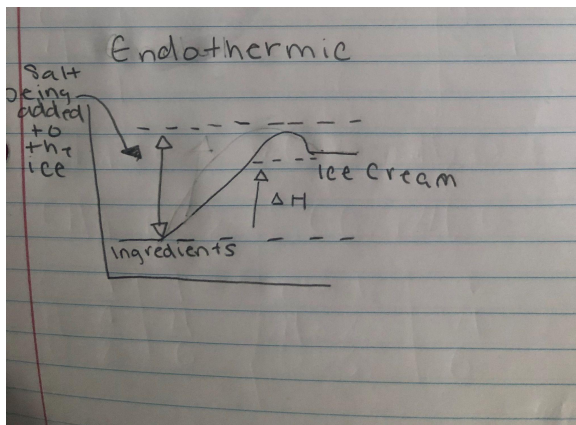 Endothermic
Salt
being
added
to
the
ice
Ice Cream
ΔH
ingredients